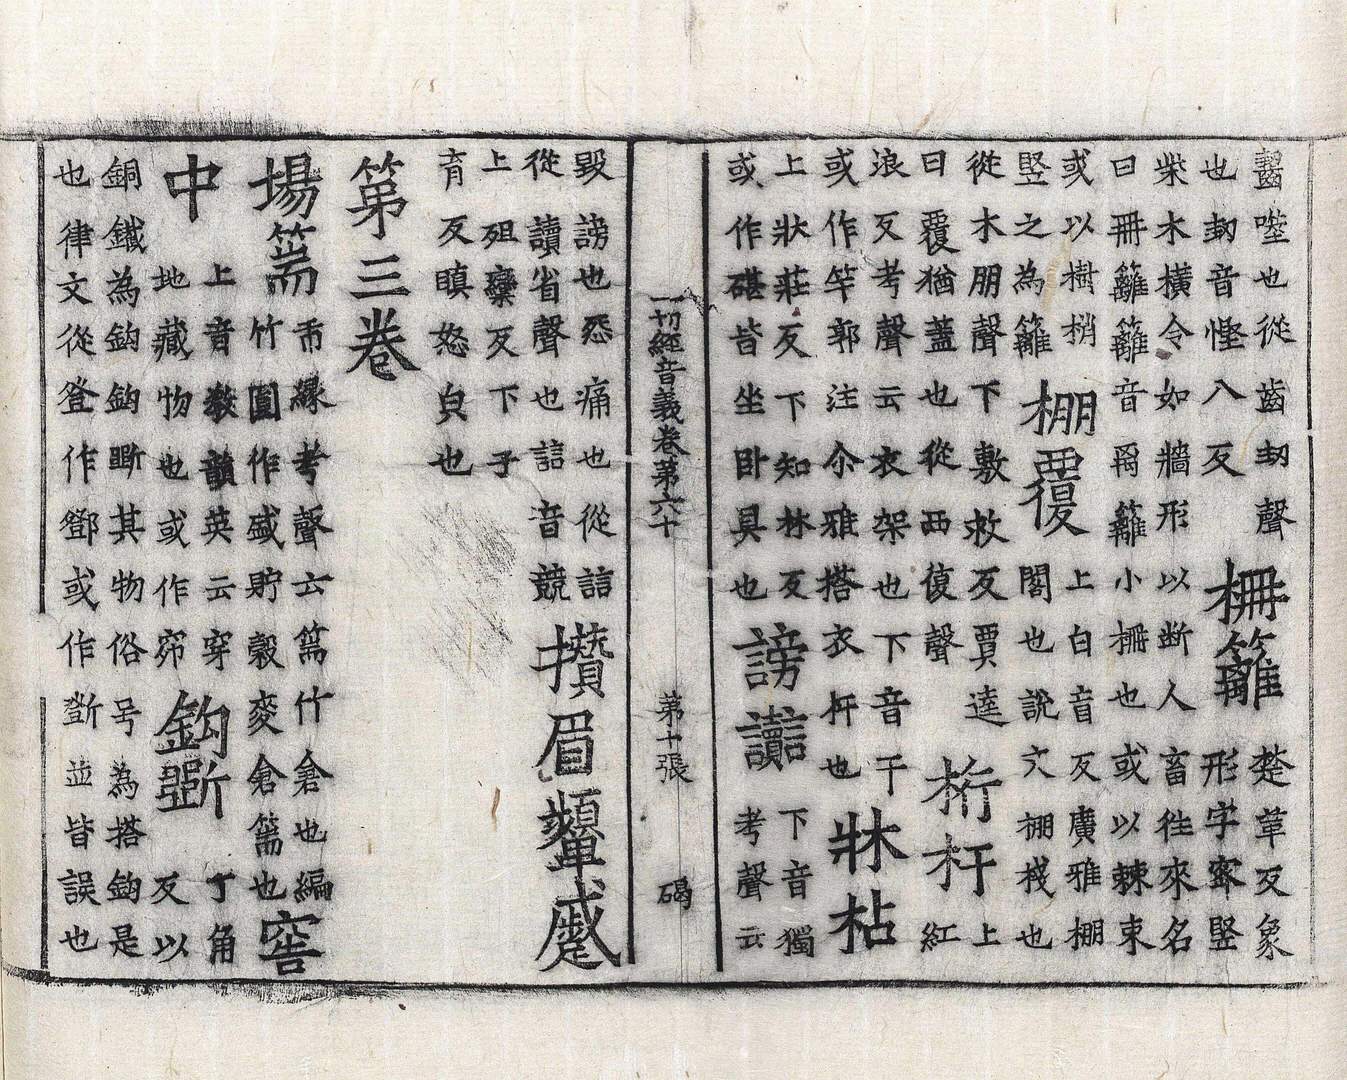 齧噬也從齒㓞聲也㓞音慳八反柵籬楚革反象形字案竪
柴木橫令如牆形以断人畜徃來名曰冊籬籬音籬小柵也或以棘束
或以樹梢竪之為籬棚覆上白音反廣雅棚閣也說文棚棧也
從木朋聲下敷救反賈逵曰覆猶蓋也從襾復聲桁杆上紅
浪反考聲云衣架也下音干或作竿郭注尒雅搭衣杆也牀枮
上狀莊反下知林反或作碪皆坐卧具也謗讟下音獨考聲云
一切經音義卷第六十 第十張 碣
毀謗也怨痛也從誩從讀省聲也誩音競攢眉顰蹙
上徂欒反下子育反瞋怒皃也
第三卷
場篅市緣考聲云篅竹倉也編竹圓作盛貯穀麥倉篅也窖
中上音教韻英云穿地藏物也或作窌鈎斵丁角反以
銅鐵為鈎鈎斵其物俗号為搭鈎是也律文從登作鐙或作並皆誤也